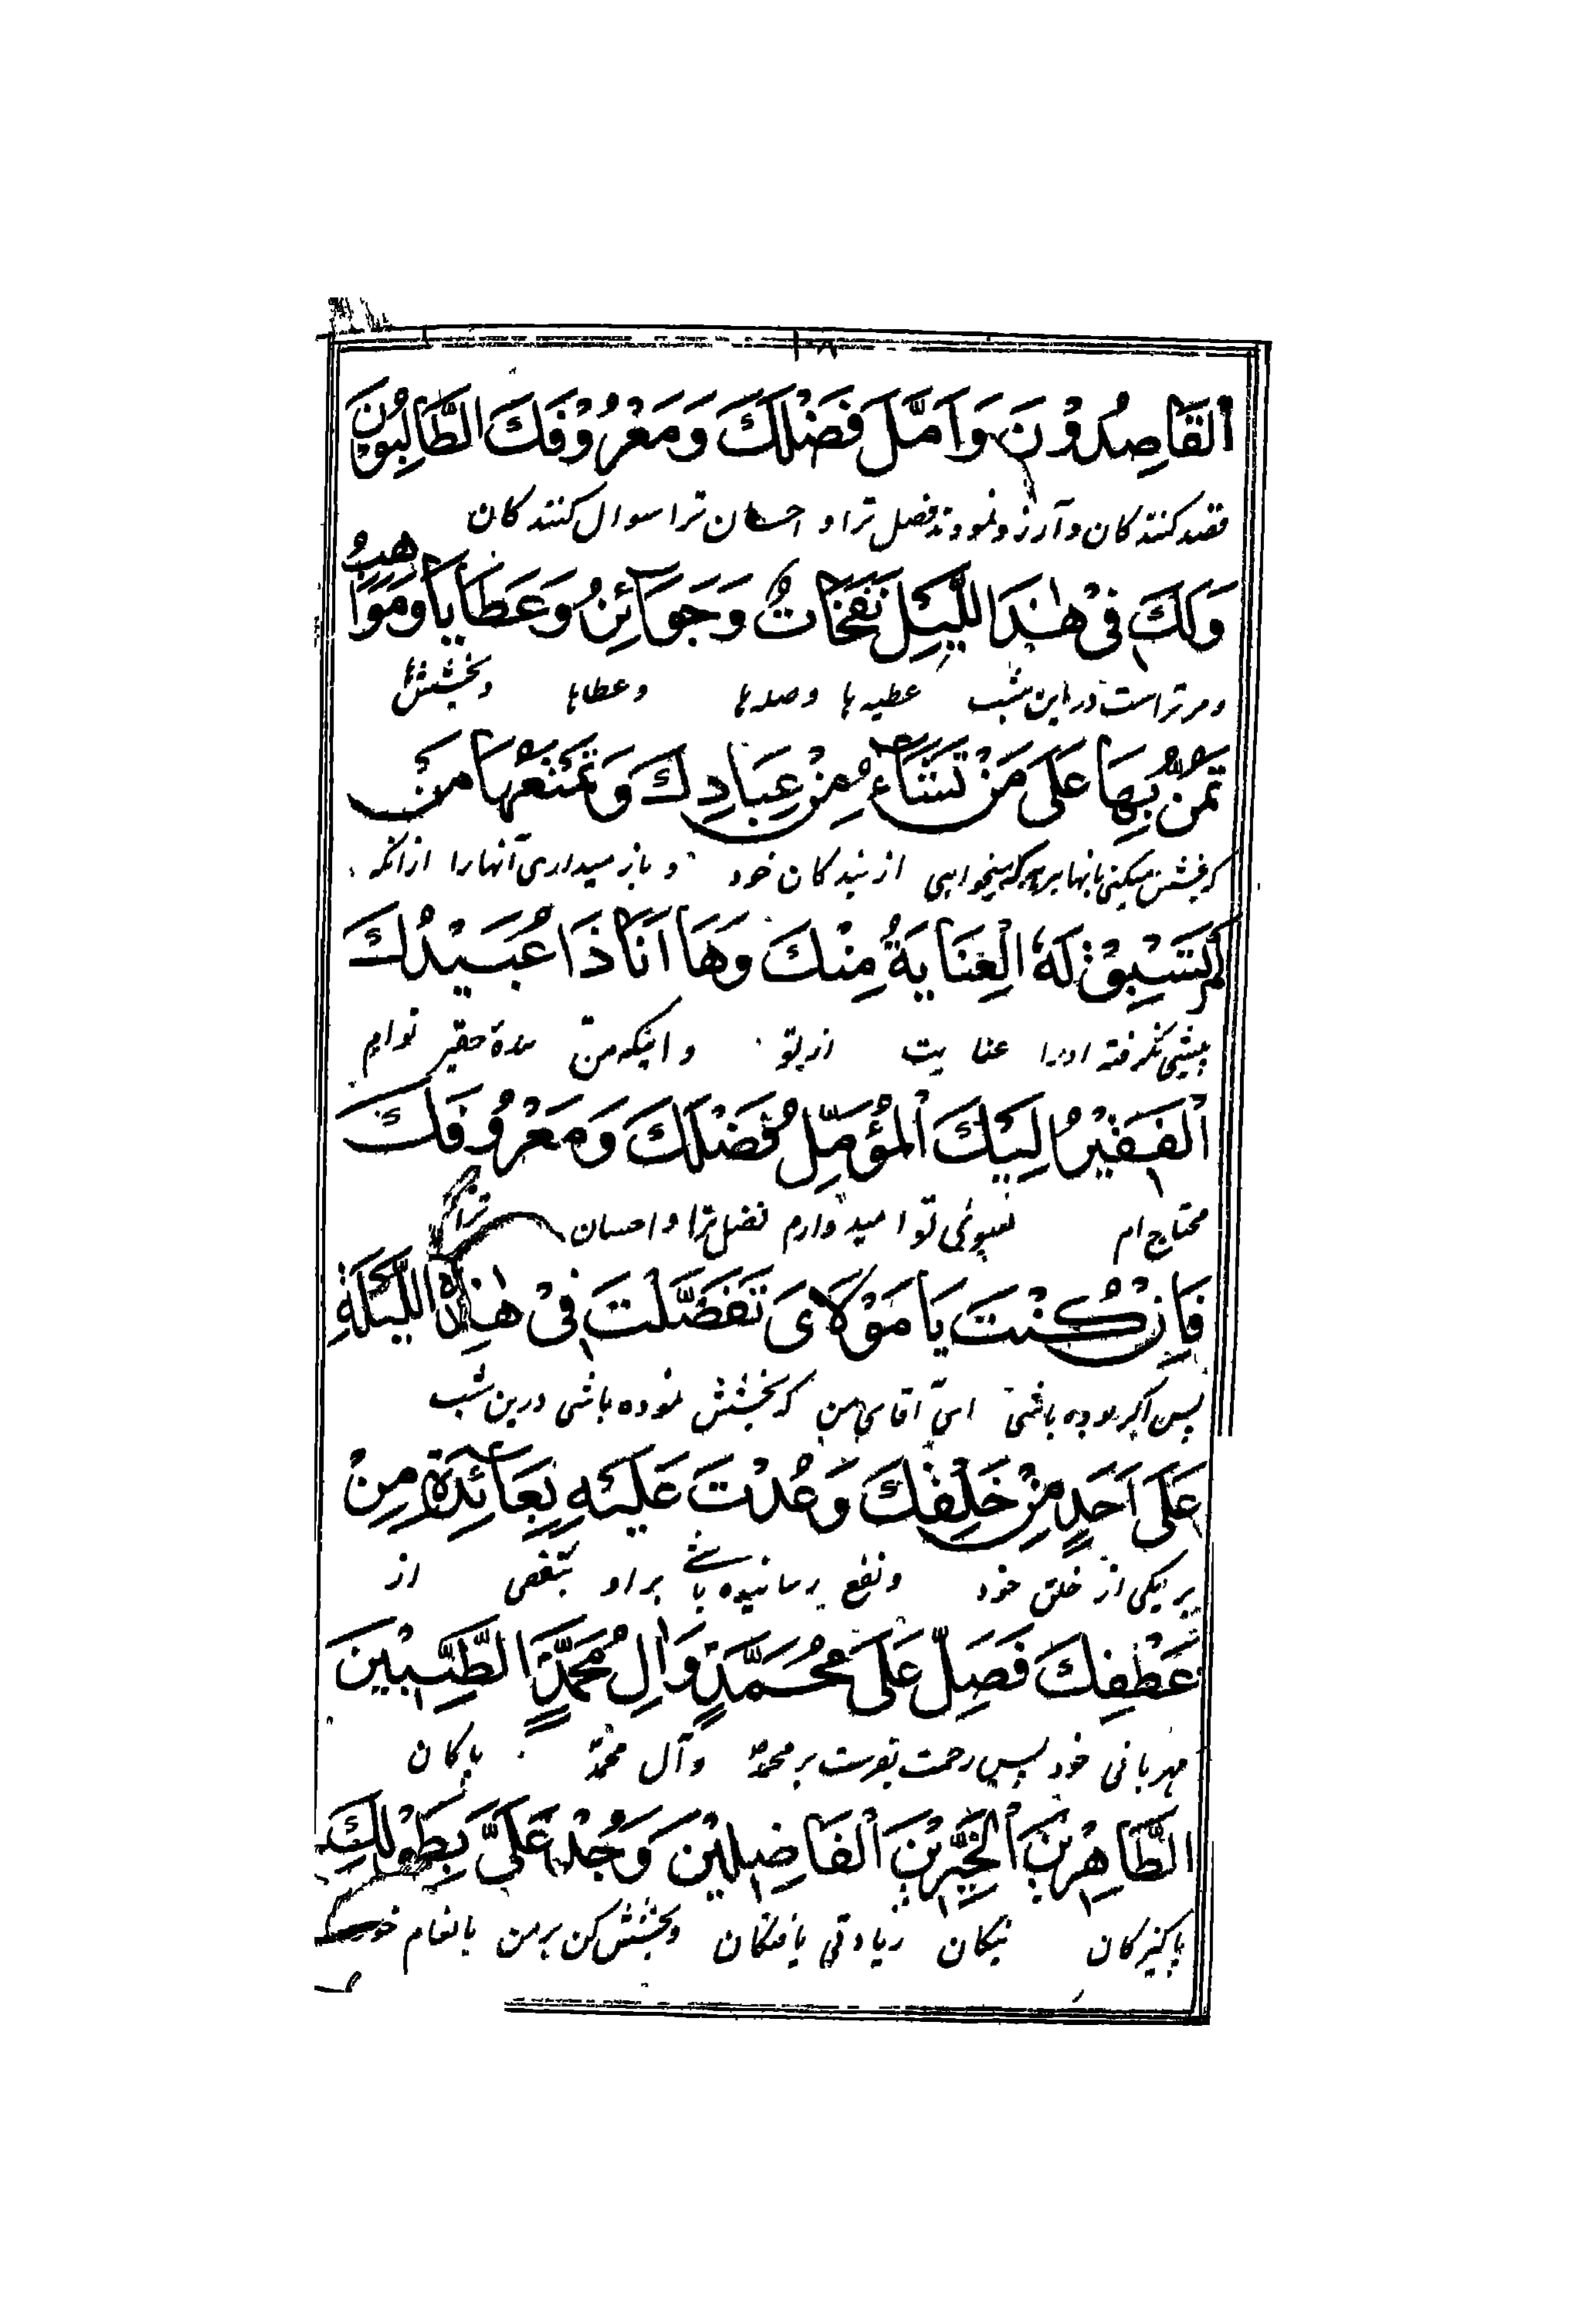 ۱۰۸
اَلْقَاصِدُوْنَ وَاَمَّلَ فَضْلَكَ وَمَعْرُوْفَكَ الطَّالِبُوْنَ
قصد کنندکان و آرزو نمودند فضل ترا و احسان ترا سوال کنندکان
وَلَكَ فِىْ هٰذَا اللَّيْلِ نَفَحَاتٌ وَجَوَائِزُ وَعَطَايَا وَمَوَاهِبُ
و مر تراست در این شب عطیه ها و صله ها و عطاها و بخشش ها
تَمُنُّ بِهَا عَلَى مَنْ تَشَاءُ مِنْ عِبَادِكَ وَتَمْنَعُهَا مَنْ
که بخشش میکنی بانها بر هر که میخواهی از بندکان خود و باز میداری آنها را از آنکه
لَمْ تَسْبِقْ لَهُ الْعِنَايَةُ مِنْكَ وَهَا اَنَا ذَا عُبَيْدُكَ
پیشی نگرفته او را عنا یت از تو و اینکه من بندهٔ حقیر توام
اَلْفَقِيْرُ اِلَيْكَ اَلْمُؤَمِّلُ فَضْلَكَ وَمَعْرُوْفَكَ
محتاج ام بسوئی تو امید دارم فضل ترا و احسان ترا
فَاِنْ كُنْتَ يَا مَوْلَاىَ تَفَضَّلْتَ فِىْ هٰذِهِ اللَّيْلَةِ
پس اکر بوده باشی ای آقای من که بخشش نموده باشی درین شب
عَلَى اَحَدٍ مِنْ خَلْقِكَ وَعُدْتَ عَلَيْهِ بِعَائِدَةٍ مِنْ
بر یکی از خلق خود و نفع رسانیده باشے براو بنفعی از
عَطْفِكَ فَصَلِّ عَلَى مُحَمَّدٍ وَاٰلِ مُحَمَّدٍ الطَّيِّبِيْنَ
مهربانی خود پس رحمت بفرست بر محمد و آل محمد پاکان
الطَّاهِرِيْنَ اَلْخَيِّرِيْنَ اَلْفَاضِلِيْنَ وَجُدْ عَلَىَّ بِطَوْلِكَ
پاکیزکان نیکان زیادتی یافتکان و بخشش کن بر من بانعام خود